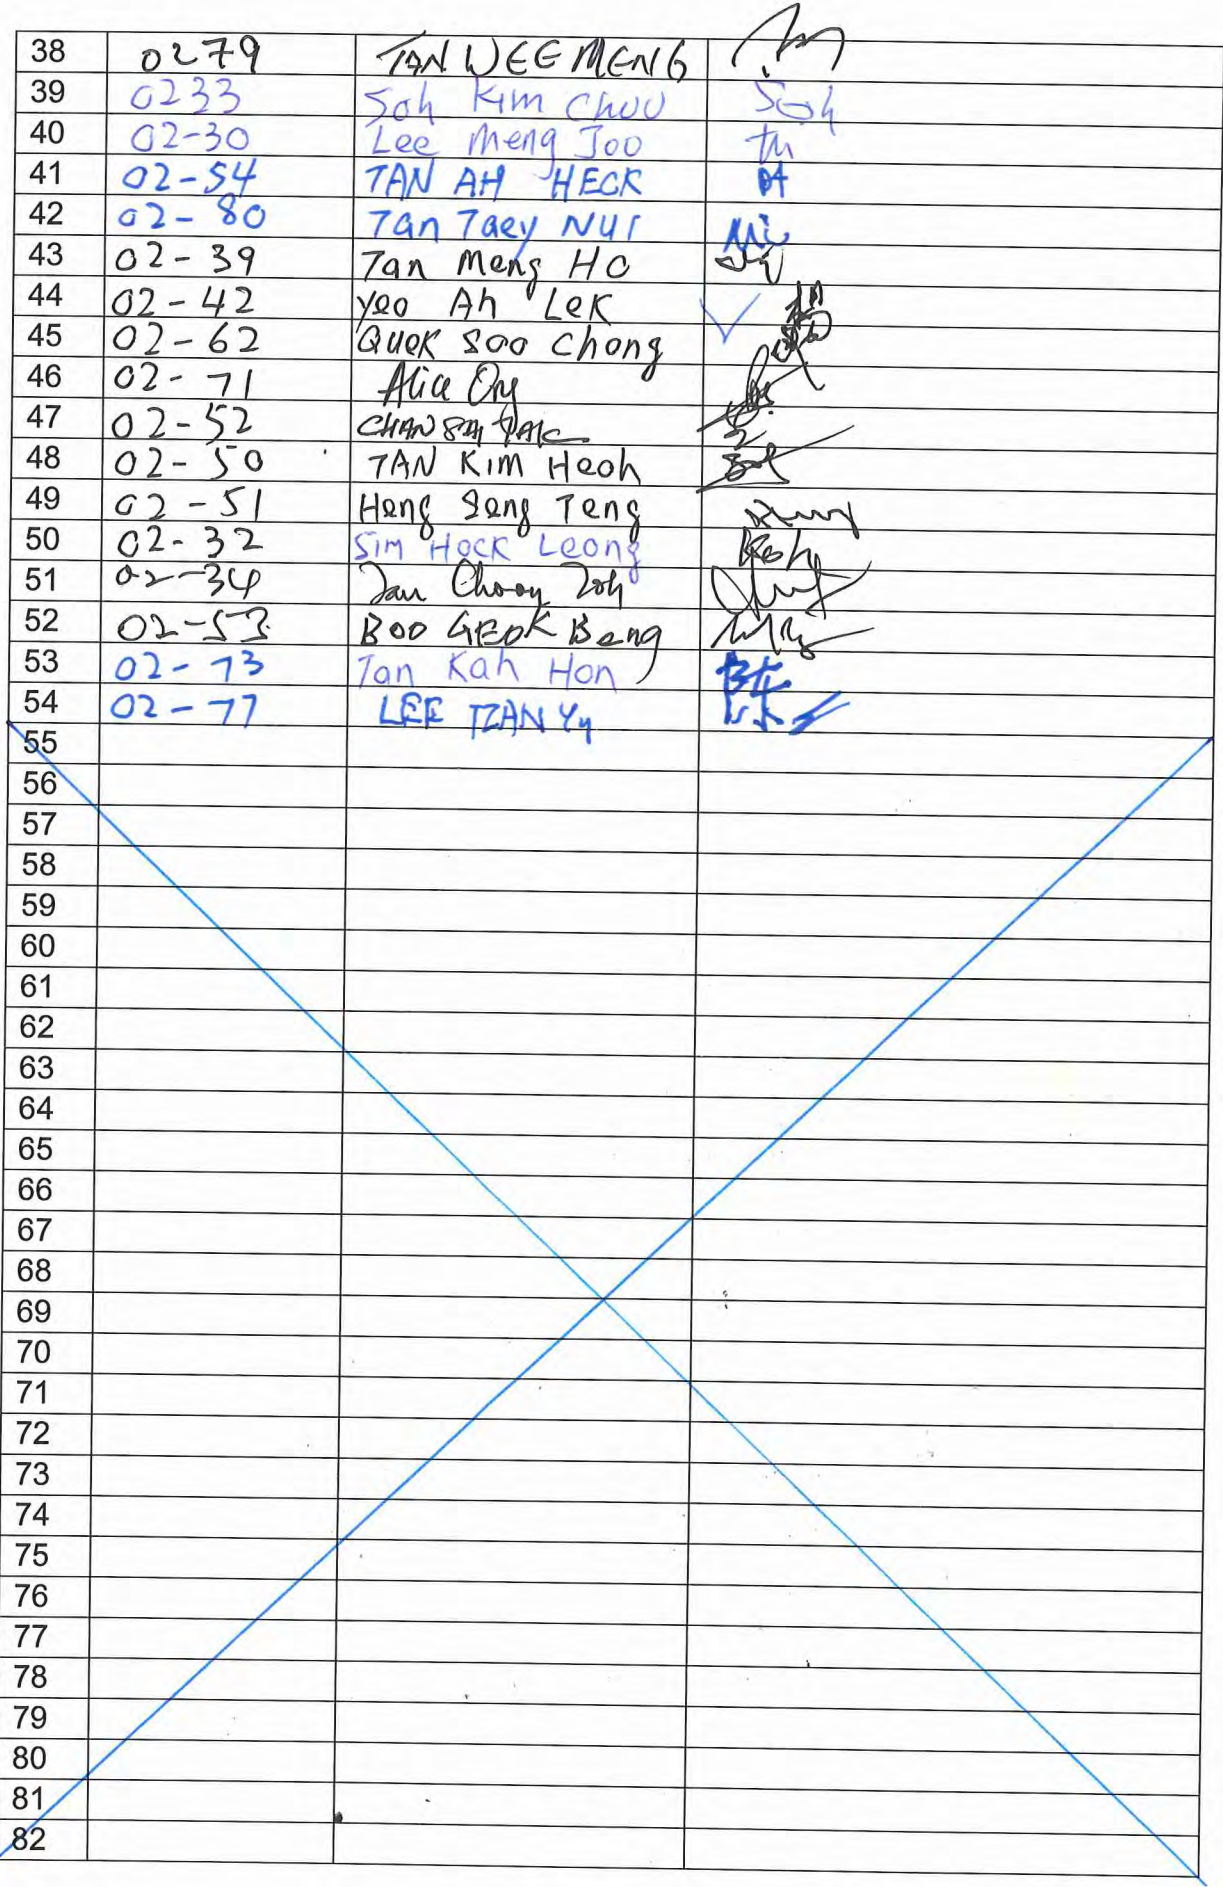 38 0279 TAN WEE MENG
39 0233 Soh Kim Chuu Soh
40 02-30 Lee Meng Joo
41 02-54 TAN AH HECK
42 02-80 Tan Taey Nui
43 02-39 Tan Meng Ho
44 02-42 Yeo Ah Lek
45 02-62 Quek Soo Chong
46 02-71 Alice Ong
47 02-52 CHAN
48 02-50 TAN Kim Heoh
49 02-51 Heng Seng Teng
50 02-32 Sim Hock Leong
51 02-34 Tan Choon
52 02-53 Boo GEOK Beng
53 02-73 Tan Kah Hon
54 02-77 LEE TZAN Yy
55
56
57
58
59
60
61
62
63
64
65
66
67
68
69
70
71
72
73
74
75
76
77
78
79
80
81
82